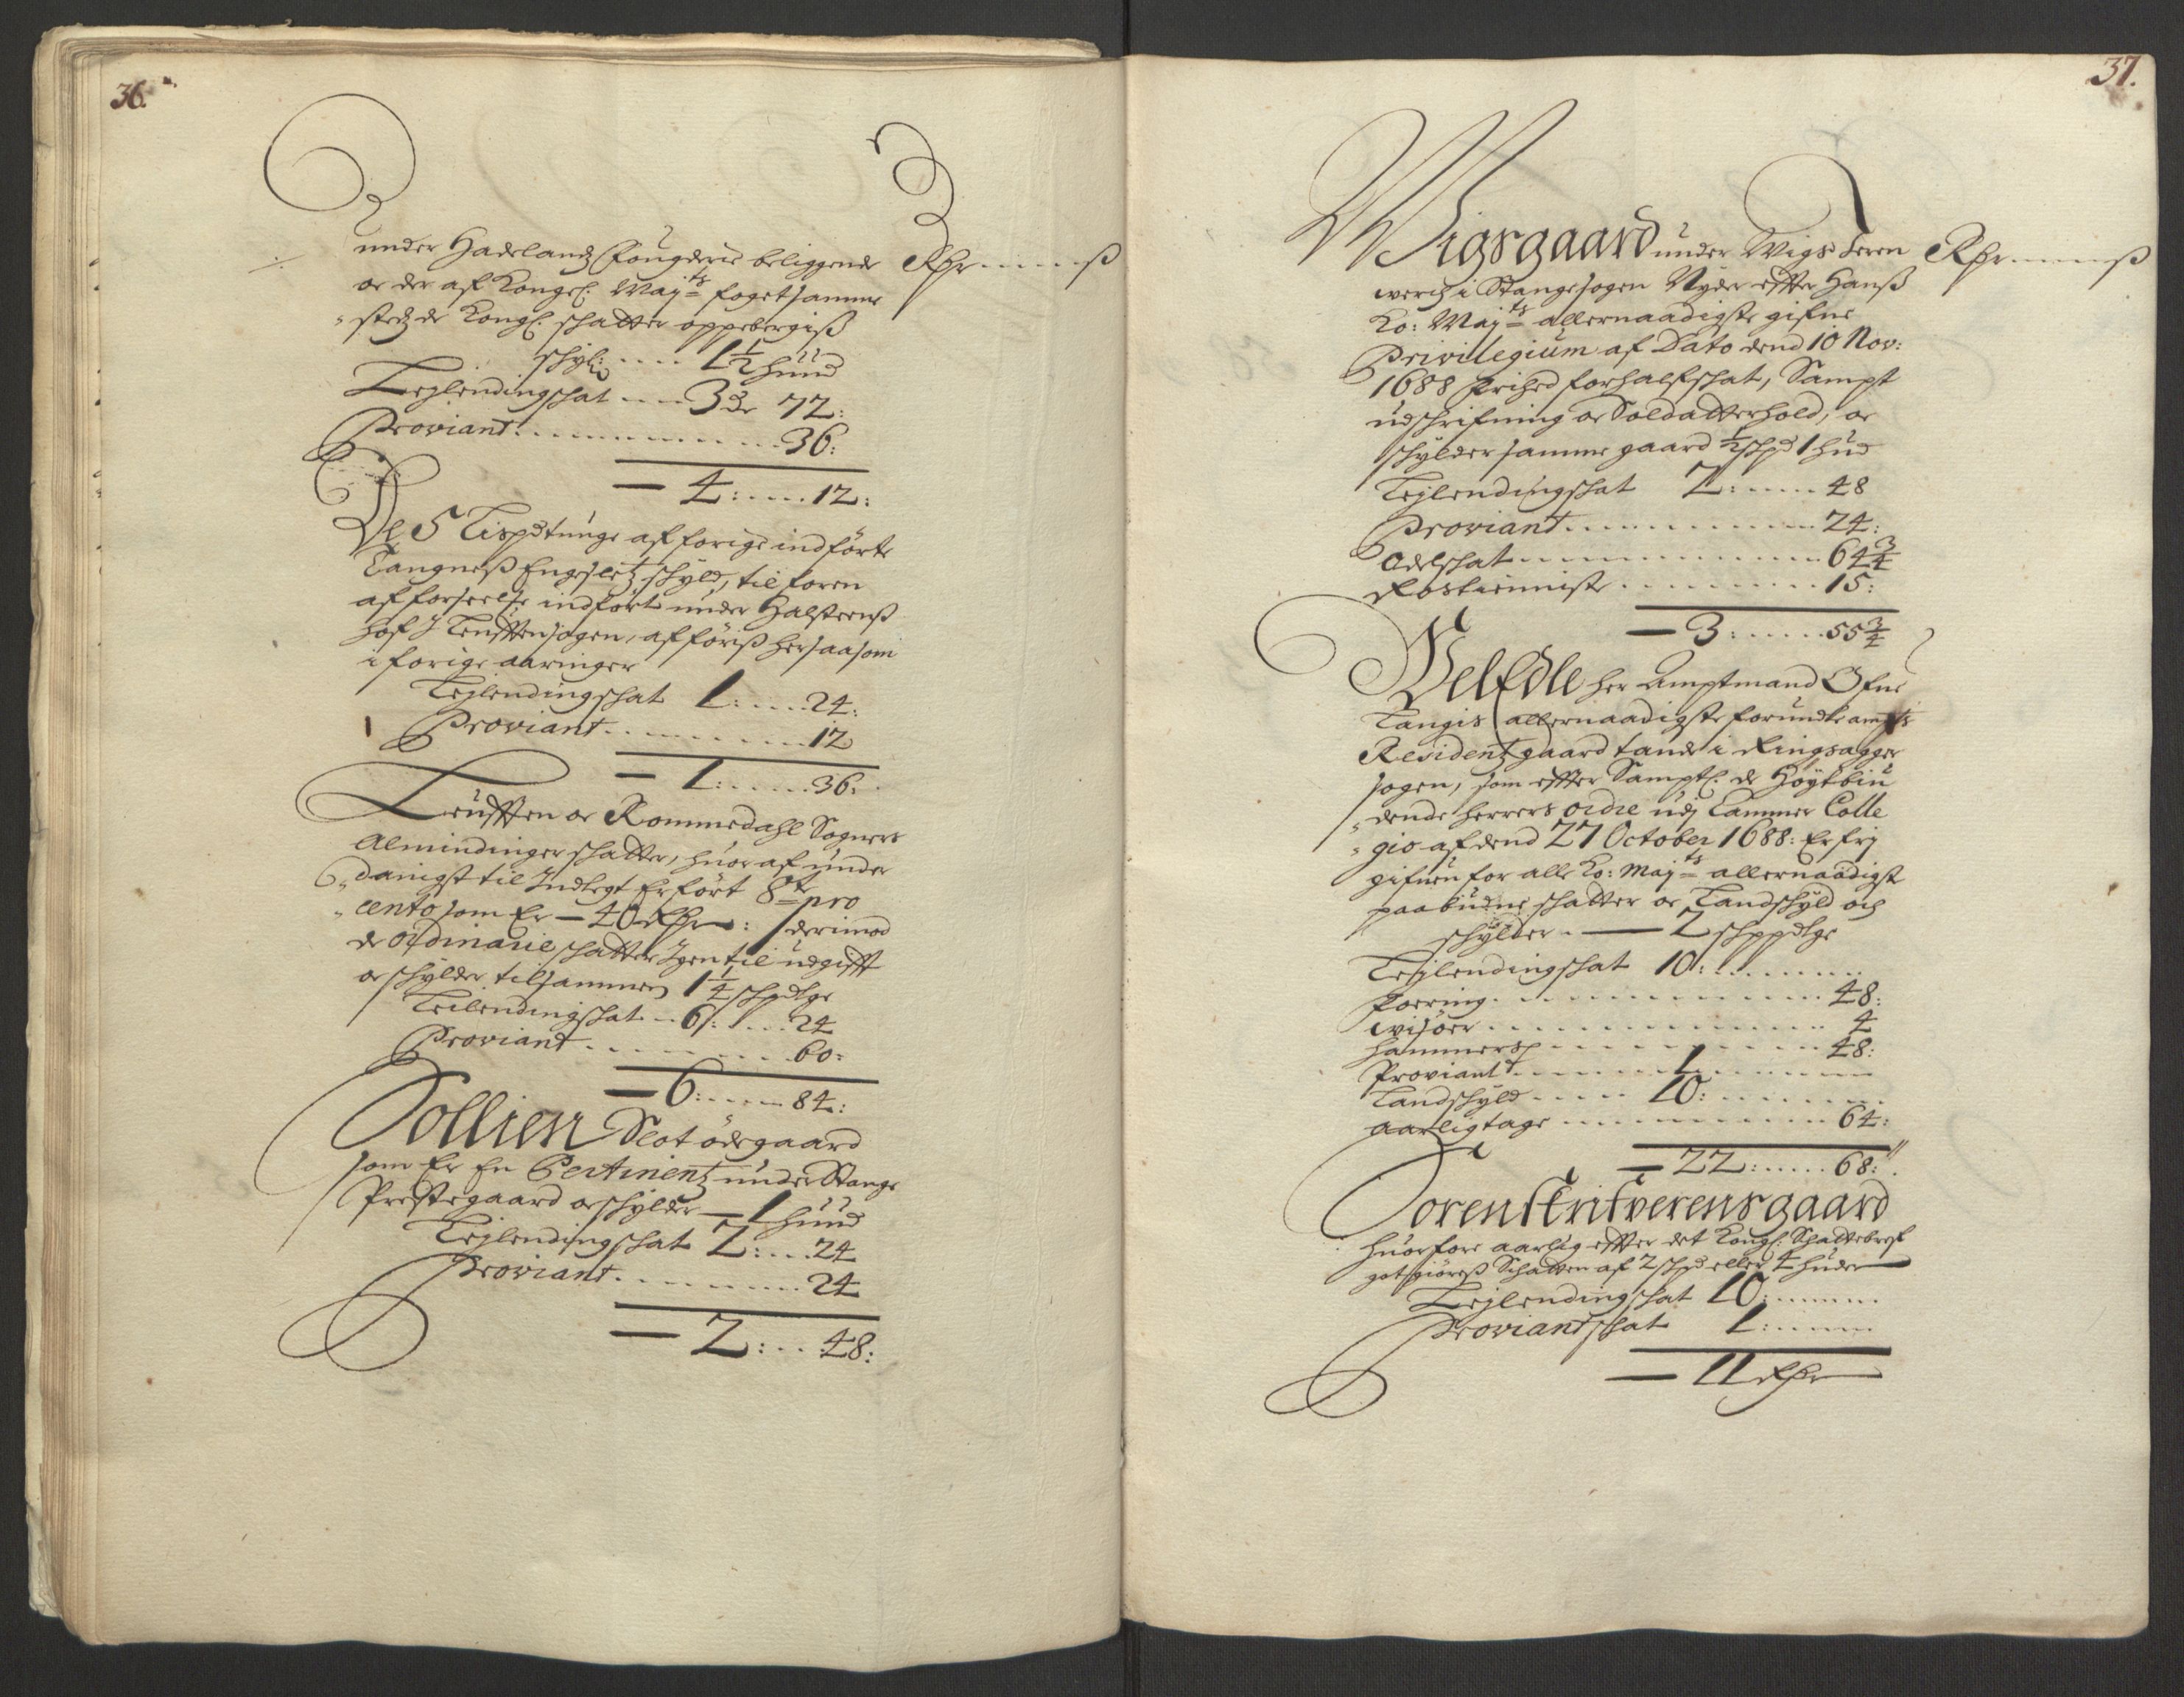 36.
under Hadelandz fougderie beliggende Rhr ß
oc der af Kongl: Maj:ts foget samme
stedz de Kongl: schatter oppebergiß
schyl: 1½ huud
Lejlendingschat 3 dr 72:
Proviant: 36:
4: 12:
De 5 Lispd tunge af forige indförte
Langneß Engesletz schyld, til foren
af forseelse indfört under Halsteenß
hof J Leutten sogen, afföriß her saasom
i forige aaringer
Lejlendingschat 1: 24:
Proviant 12
1: 36:
Leutten oc Rommedahl Sogners
Almindinger schatter, huor af under
danigst til Indtegt Er fört 8te pro
cento som Er 40 Rhr: derimod
de ordinarie schatter Igen til udgifft
oc schylder tilsammen 1¼ schpdtge
Leilendingschat 6: 24
Proviant 60:
6: 84:
Sollien Slot ödegaard
som Er En Pertinentz under Stange
Prestegaard oc schylder 1 huud
Lejlendingschat 2: 24
Proviant 24
2: 48:
37.
Wigsgaard under Wigs Teren Rhr ß
werch i Stange sogen Nyder effter Hanß
Ko: Maj:ts allernaadigste gifne
Privilegium af Dato dend 10 Nov:
1688 frihed for half schat, Sampt
udschrifning oc Soldatterhold, oc
schylder samme gaard ½ schpd 1 hud
Lejlendingschat 2: 48
Proviant 24:
Odelschat 64¾
Rostienniste 15:
3: 55¾
VelEdle her Amptmand Ofne
Langis allernaadigste forundte ampts
Residentz gaard Lande i Ringsagger
sogen, som effter Samptl: de Höytbiu
dende herrers ordre udj Cammer Colle
gio af dend 27 October 1688: Er frj
gifuen for alle Ko: Maj:ts allernaadigst
paabudne schatter oc Landschyld och
schylder 2 schppdtge
Lejlendingschat 10:
foering 48:
wisöer 4
hammersch 48:
Proviant 1
Landschyld 10:
aarligtage 64:
22: 68:
Sorenskrifverens gaard
huorfore aarlig effter det Kongl: Schattebref
gotgiöreß Schatten af 2 schpd eller 4 huder
Lejlendingschat 10:
Proviantschat 1:
11 Rhr